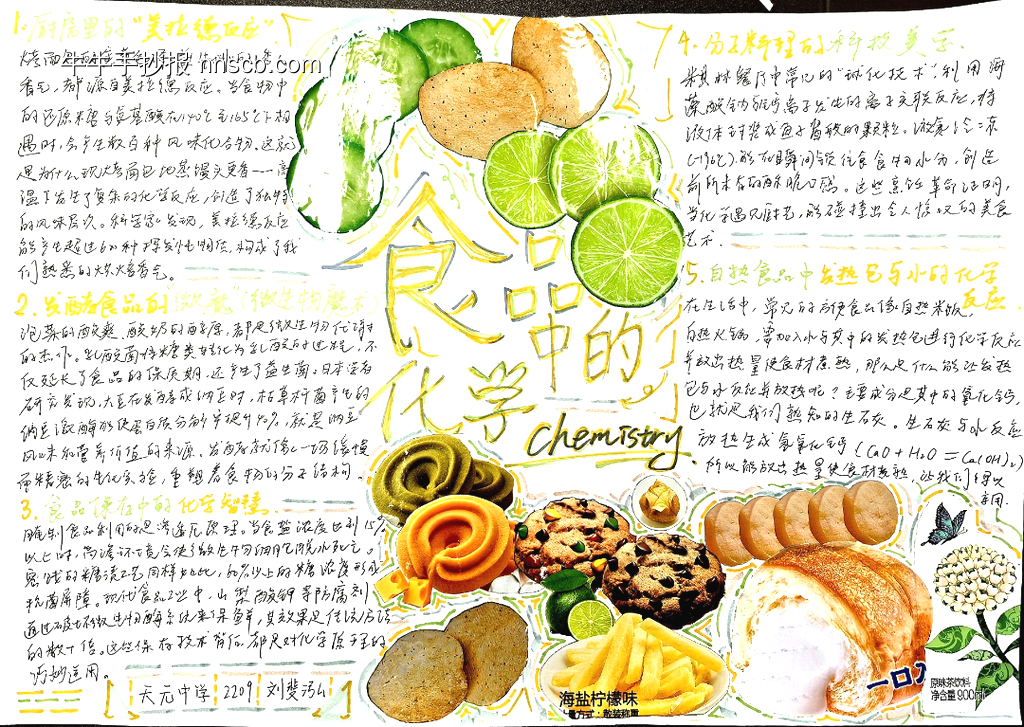 1.厨房里的"美拉德反应"
牛牛手抄报 nnscb.com
香气,都源自美拉德反应。当食物中
的还原糖与氨基酸在140℃至165℃下相
遇时,会产生数百种风味化合物。这就
是为什么现烤面包比蒸馒头更香---高
温下发生了复杂的化学反应,创造了独特
的风味层次。科学家发现,美拉德反应
能产生超过600种挥发性物质,构成了我
们熟悉的烘烤香气。
2.发酵食品的微
泡菜的酸爽、酸奶的醇厚,都是微生物代谢
的杰作。乳酸菌将糖类转化为乳酸的过程,不
仅延长了食品的保质期,还产生了益生菌。日本学者
研究发现,大豆在发酵成纳豆时,枯草杆菌产生的
纳豆激酶能使蛋白质分解率提升70%,就是纳豆
风味和营养价值的来源。发酵就像一场缓慢
而精密的生化实验,重塑着食物的分子结构。
3.食品保存中的化学智慧
腌制食品利用的是渗透压原理。当食盐浓度达到15%
以上时,高渗环境会使微生物细胞脱水死亡。
蜜饯的糖渍工艺同样如此,60%以上的糖浓度形成
抗菌屏障。现代食品工业中,山梨酸钾等防腐剂
通过破坏微生物酶系统来保鲜,其效果是传统方法
的数十倍。这些保存技术背后,都是对化学原理的
巧妙运用。
天元中学 2209
食品中的
化学
chemistry
4.分子料理的科技美学
米其林餐厅中常见的"球化技术",利用海
藻酸钠与钙离子发生的离子交联反应,将
液体封装成鱼子酱般的颗粒。液氮急冻
(-196℃)能在瞬间锁住食材水分,创造
前所未有的酥脆口感。这些烹饪革命证明,
当化学遇见厨艺,能碰撞出令人惊叹的美食
艺术.
5.自热食品中发热包与水的化学
反应.
在生活中,常见的方便食品像自热米饭,
自热火锅,需要加入水与其中的发热包进行化学反应
并放出热量使食材煮熟,那么是什么能让发热
包与水反应并放热呢?主要成分是其中的氧化钙,
也就是我们熟知的生石灰。生石灰与水反应
放热生成氢氧化钙(CaO+H₂O=Ca(OH)₂)
所以能放出热量使食材煮熟,让我们得以
享用.
海盐柠檬味
计量方式:散装称重
一口
原味茶饮料
净含量900ml